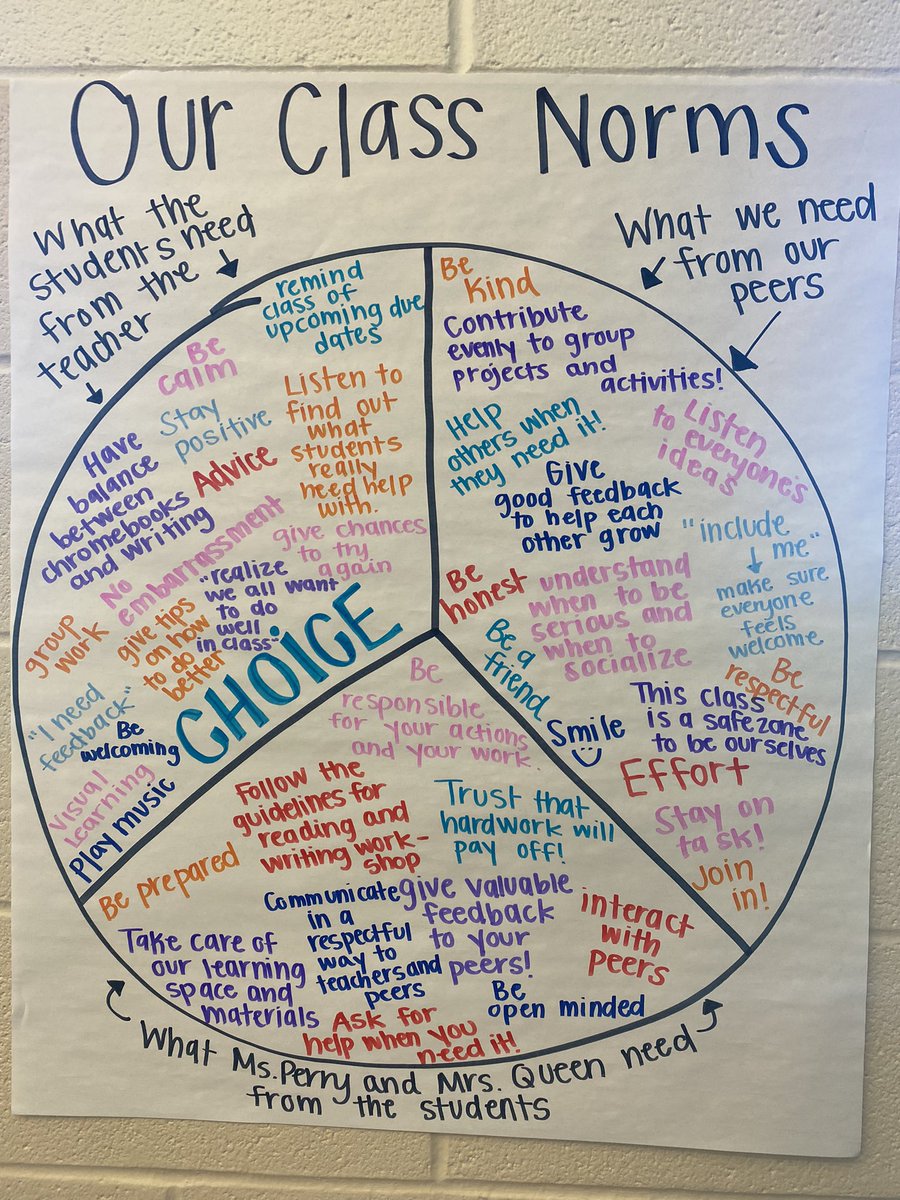 Our Class Norms
What the
students need
from the
teacher
remind
class of
upcoming due
dates
Be
calm
Stay
positive
Listen to
find out
what
students
really
need help
with.
Have
balance
between
chromebooks
and writing
Advice
No
embarrassment
give chances
to try
again
"realize
we all want
to do
well
in class"
group
work
give tips
on how
to do
better
CHOICE
"I need
feedback"
Be
welcoming
Visual
learning
Play music
What we need
from our
peers
Be
Kind
Contribute
evenly to group
projects and
activities!
Help
others when
they need it!
Listen
to everyone's
ideas
Give
good feedback
to help each
other grow
"include
me"
make sure
everyone
feels
welcome
Be
honest
understand
when to be
serious and
when to
socialize
Be a
friend
Be
respectful
This class
is a safe zone
to be ourselves
Smile
Effort
Stay on
task!
Join
in!
Be
responsible
for your actions
and your work.
Follow the
guidelines for
reading and
writing work-
shop
Trust that
hardwork will
pay off!
Be prepared
Communicate
in a
respectful
way to
teachers and
peers
give valuable
feedback
to your
peers!
interact
with
peers
Take care of
our learning
space and
materials
Be
open minded
Ask for
help when you
need it!
What Ms. Perry and Mrs. Queen need
from the students